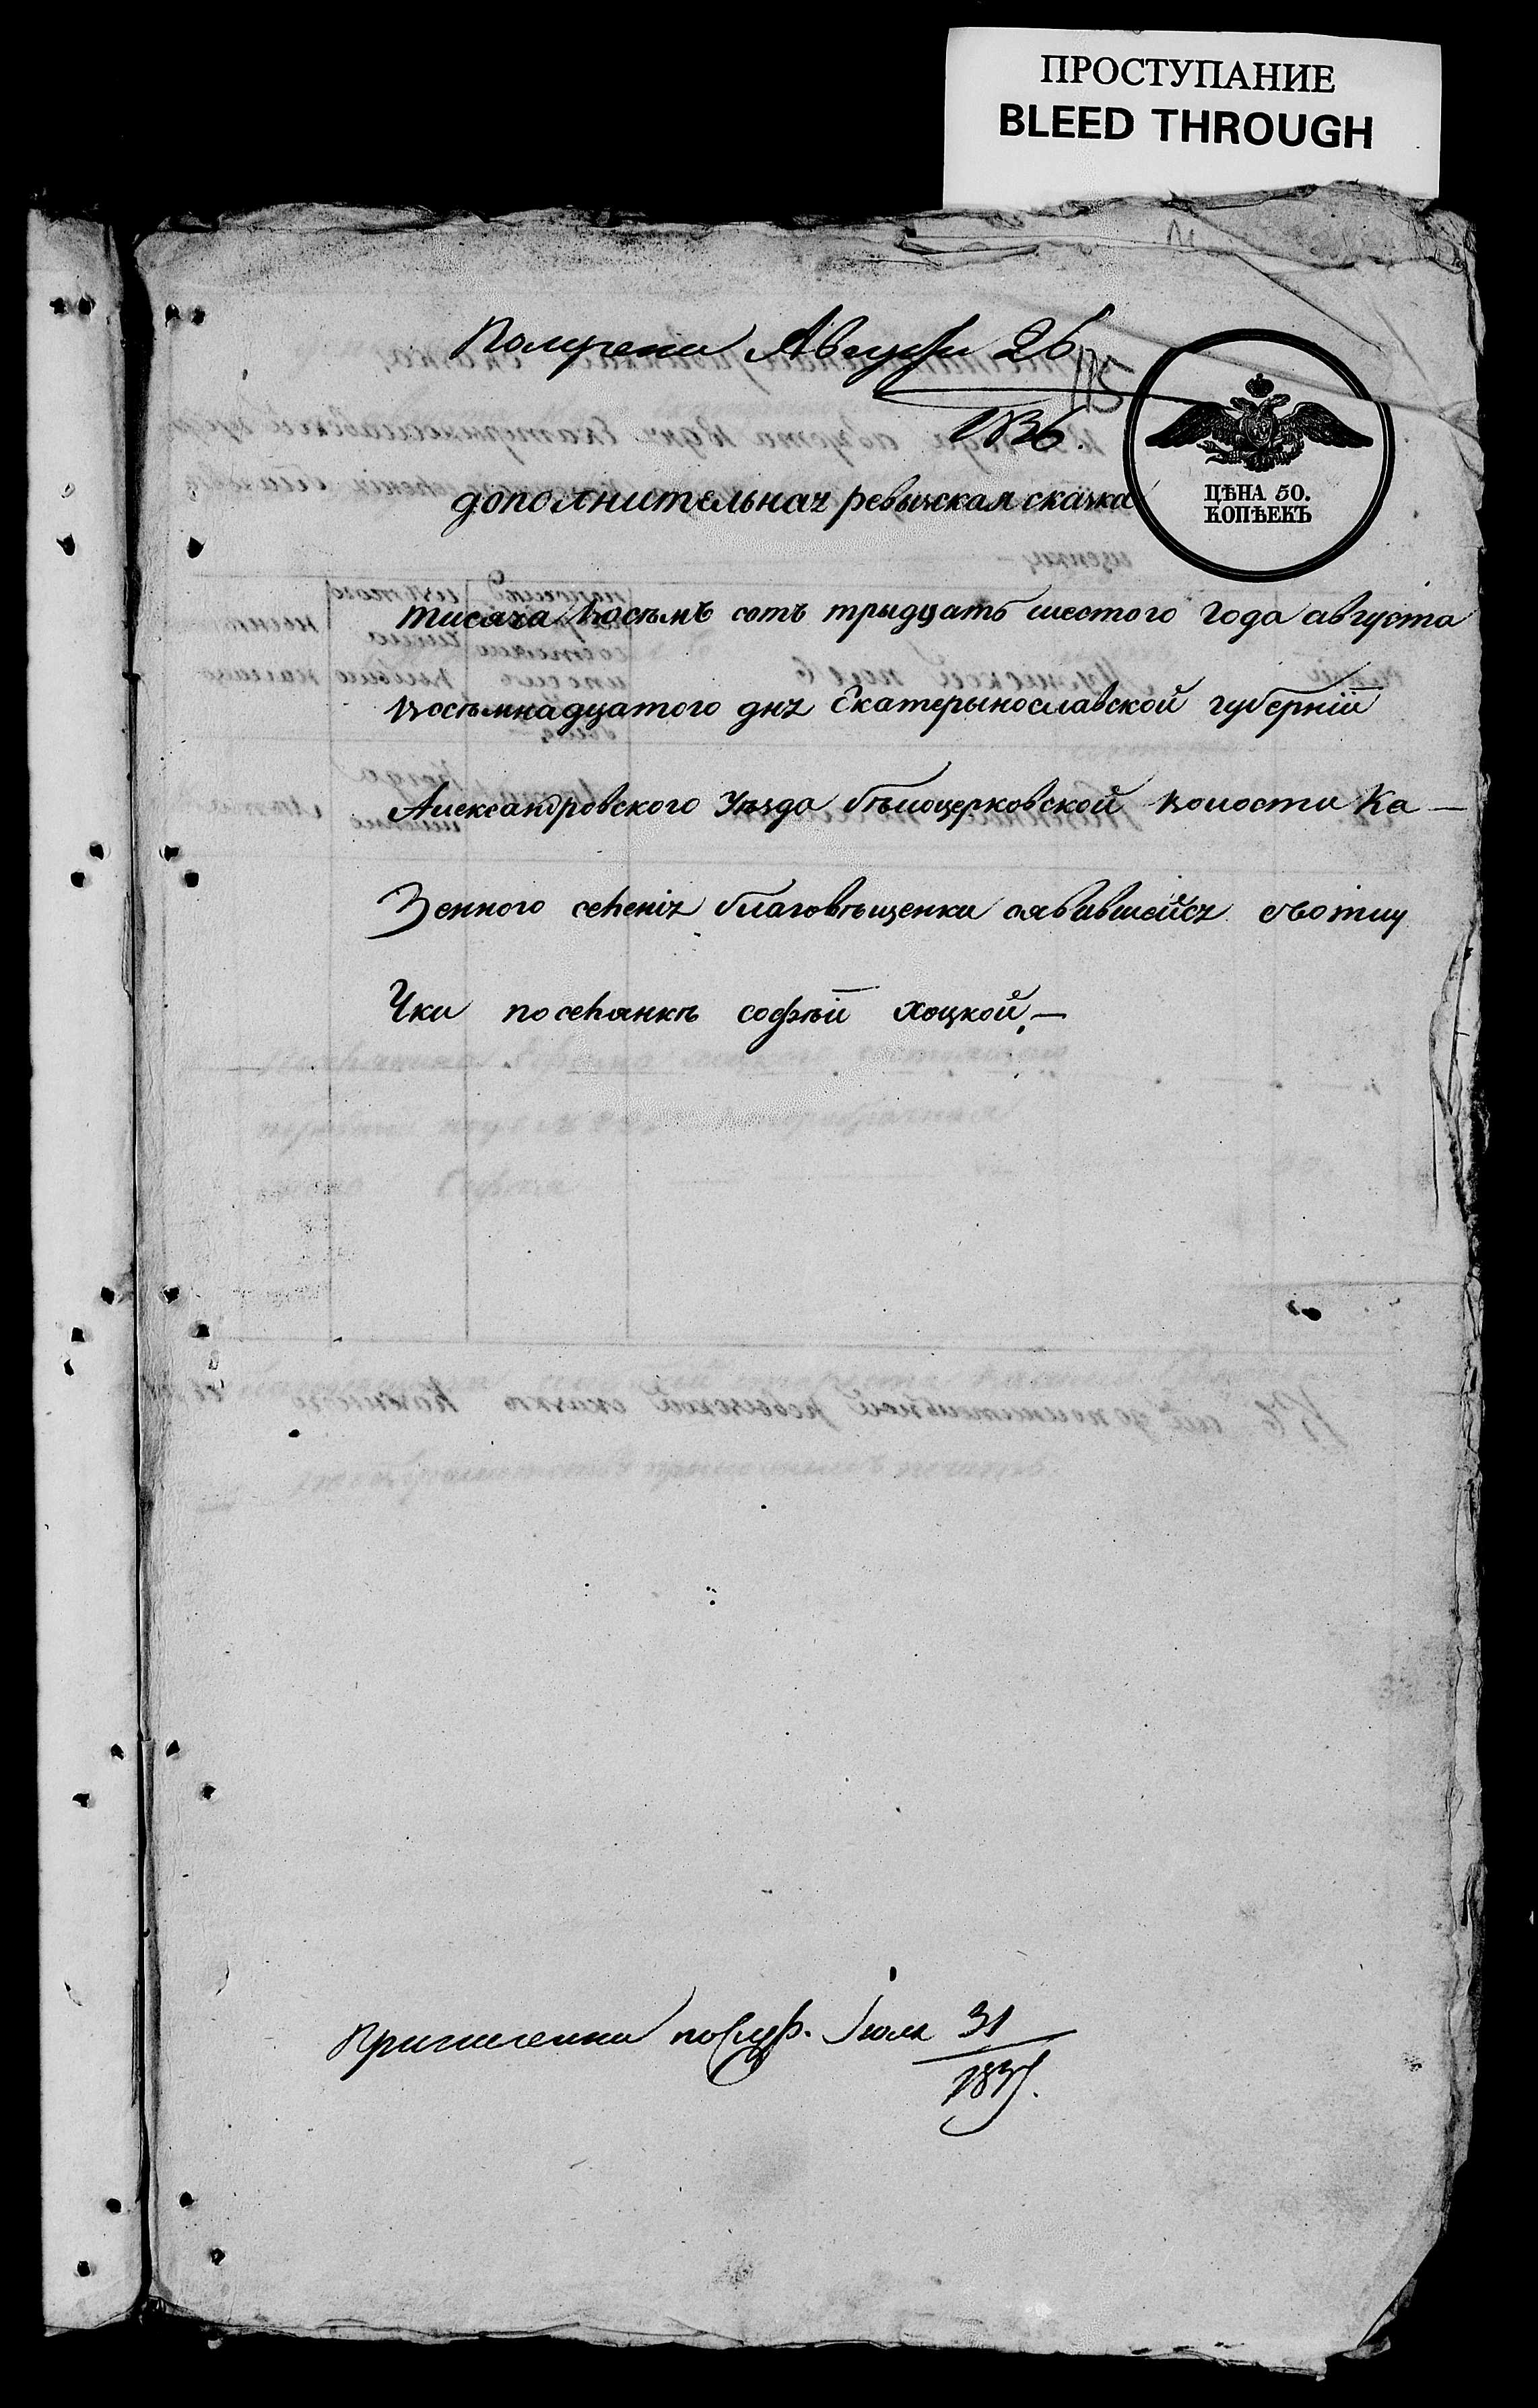 ПРОСТУПАНИЕ
BLEED THROUGH
Получена Августа 26
1836.
115
ЦѢНА 50.
КОПѢЕКЪ
дополнительная ревызская скаска
тисяча восьмъ сотъ тридцать шестого года августа
восьмнадцатого дня Екатерынославской губерніи
Александровского уезда бѣлоцерковской волости Ка—
Зенного селенія благовѣщенки оявившейся
Чки поселянкѣ софѣіи хоцкой.—
Причислена Іюля 31
1837.